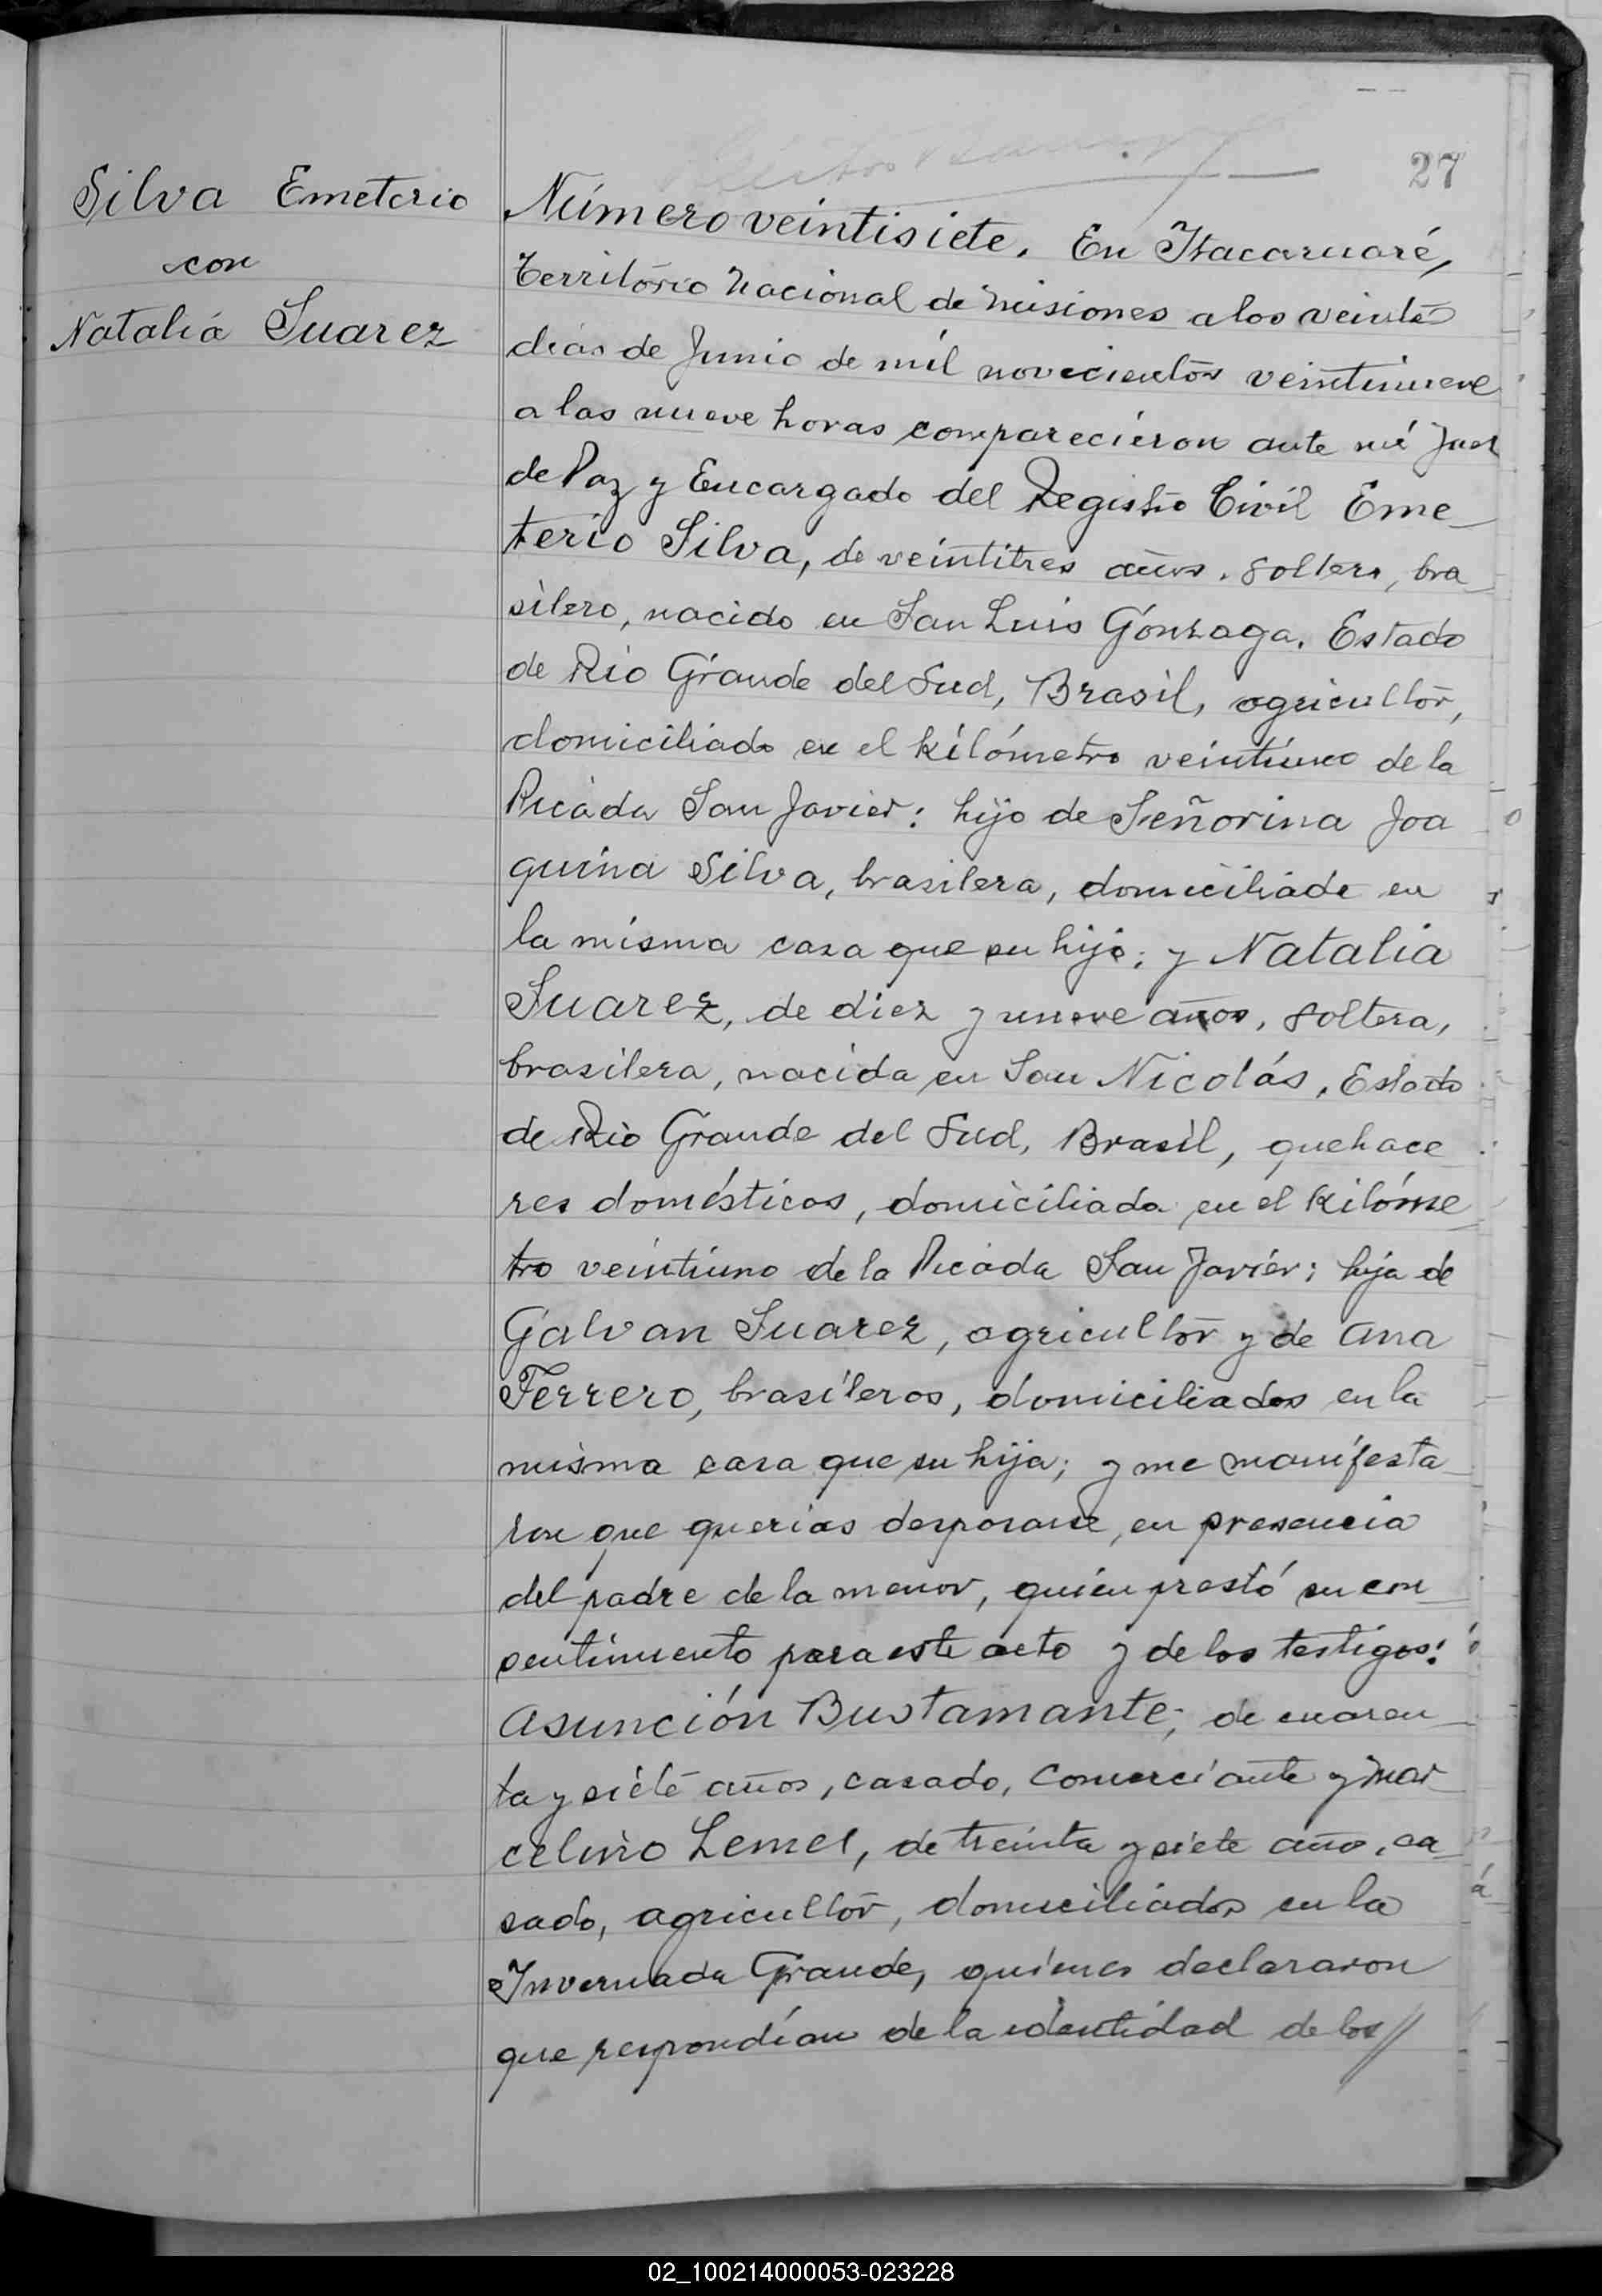 27
Silva Emeterio
con
Natalia Suarez
Número veintisiete. En Itacaruaré,
Territorio Nacional de Misiones a los veinte
dias de Junio de mil novecientos veintinueve
a las nueve horas comparecieron ante mi Juez
de Paz y Encargado del Registro Civil Eme-
terio Silva, de veintitres años. soltero, bra-
silero, nacido en San Luis Gónzaga. Estado
de Rio Grande del Sud, Brasil, agricultor,
domiciliado en el kilómetro veintiuno de la
Picada San Javier: hijo de Señorina Joa
quina Silva, brasilera, domiciliada en
la misma casa que su hijo; y Natalia
Suarez, de diez y nueve años, soltera,
brasilera, nacida en San Nicolás, Estado
de Rio Grande del Sud, Brasil, quehace
res domésticos, domiciliada en el kilóme-
tro veintiuno de la Picada San Javier; hija de
Galvan Suarez, agricultor y de Ana
Ferrero, brasileros, domiciliados en la
misma casa que su hija; y me manifesta-
ron que querias desposarse, en presencia
del padre de la menor, quien prestó su con-
sentimiento para este acto y de los testigos:
Asunción Bustamante; de cuaren-
ta y siete años, casado, comerciante y Mar-
celino Lemes, de treinta y siete años, ca-
sado, agricultor, domiciliados en la
Invernada Grande, quienes declararon
que respondían de la identidad de los //
02_100214000053-023228